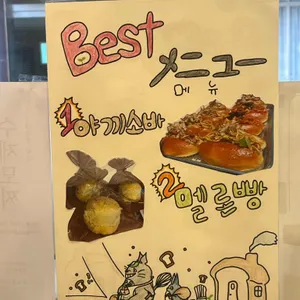 Best
メニュー
메뉴
1 야끼소바
2 멜론빵